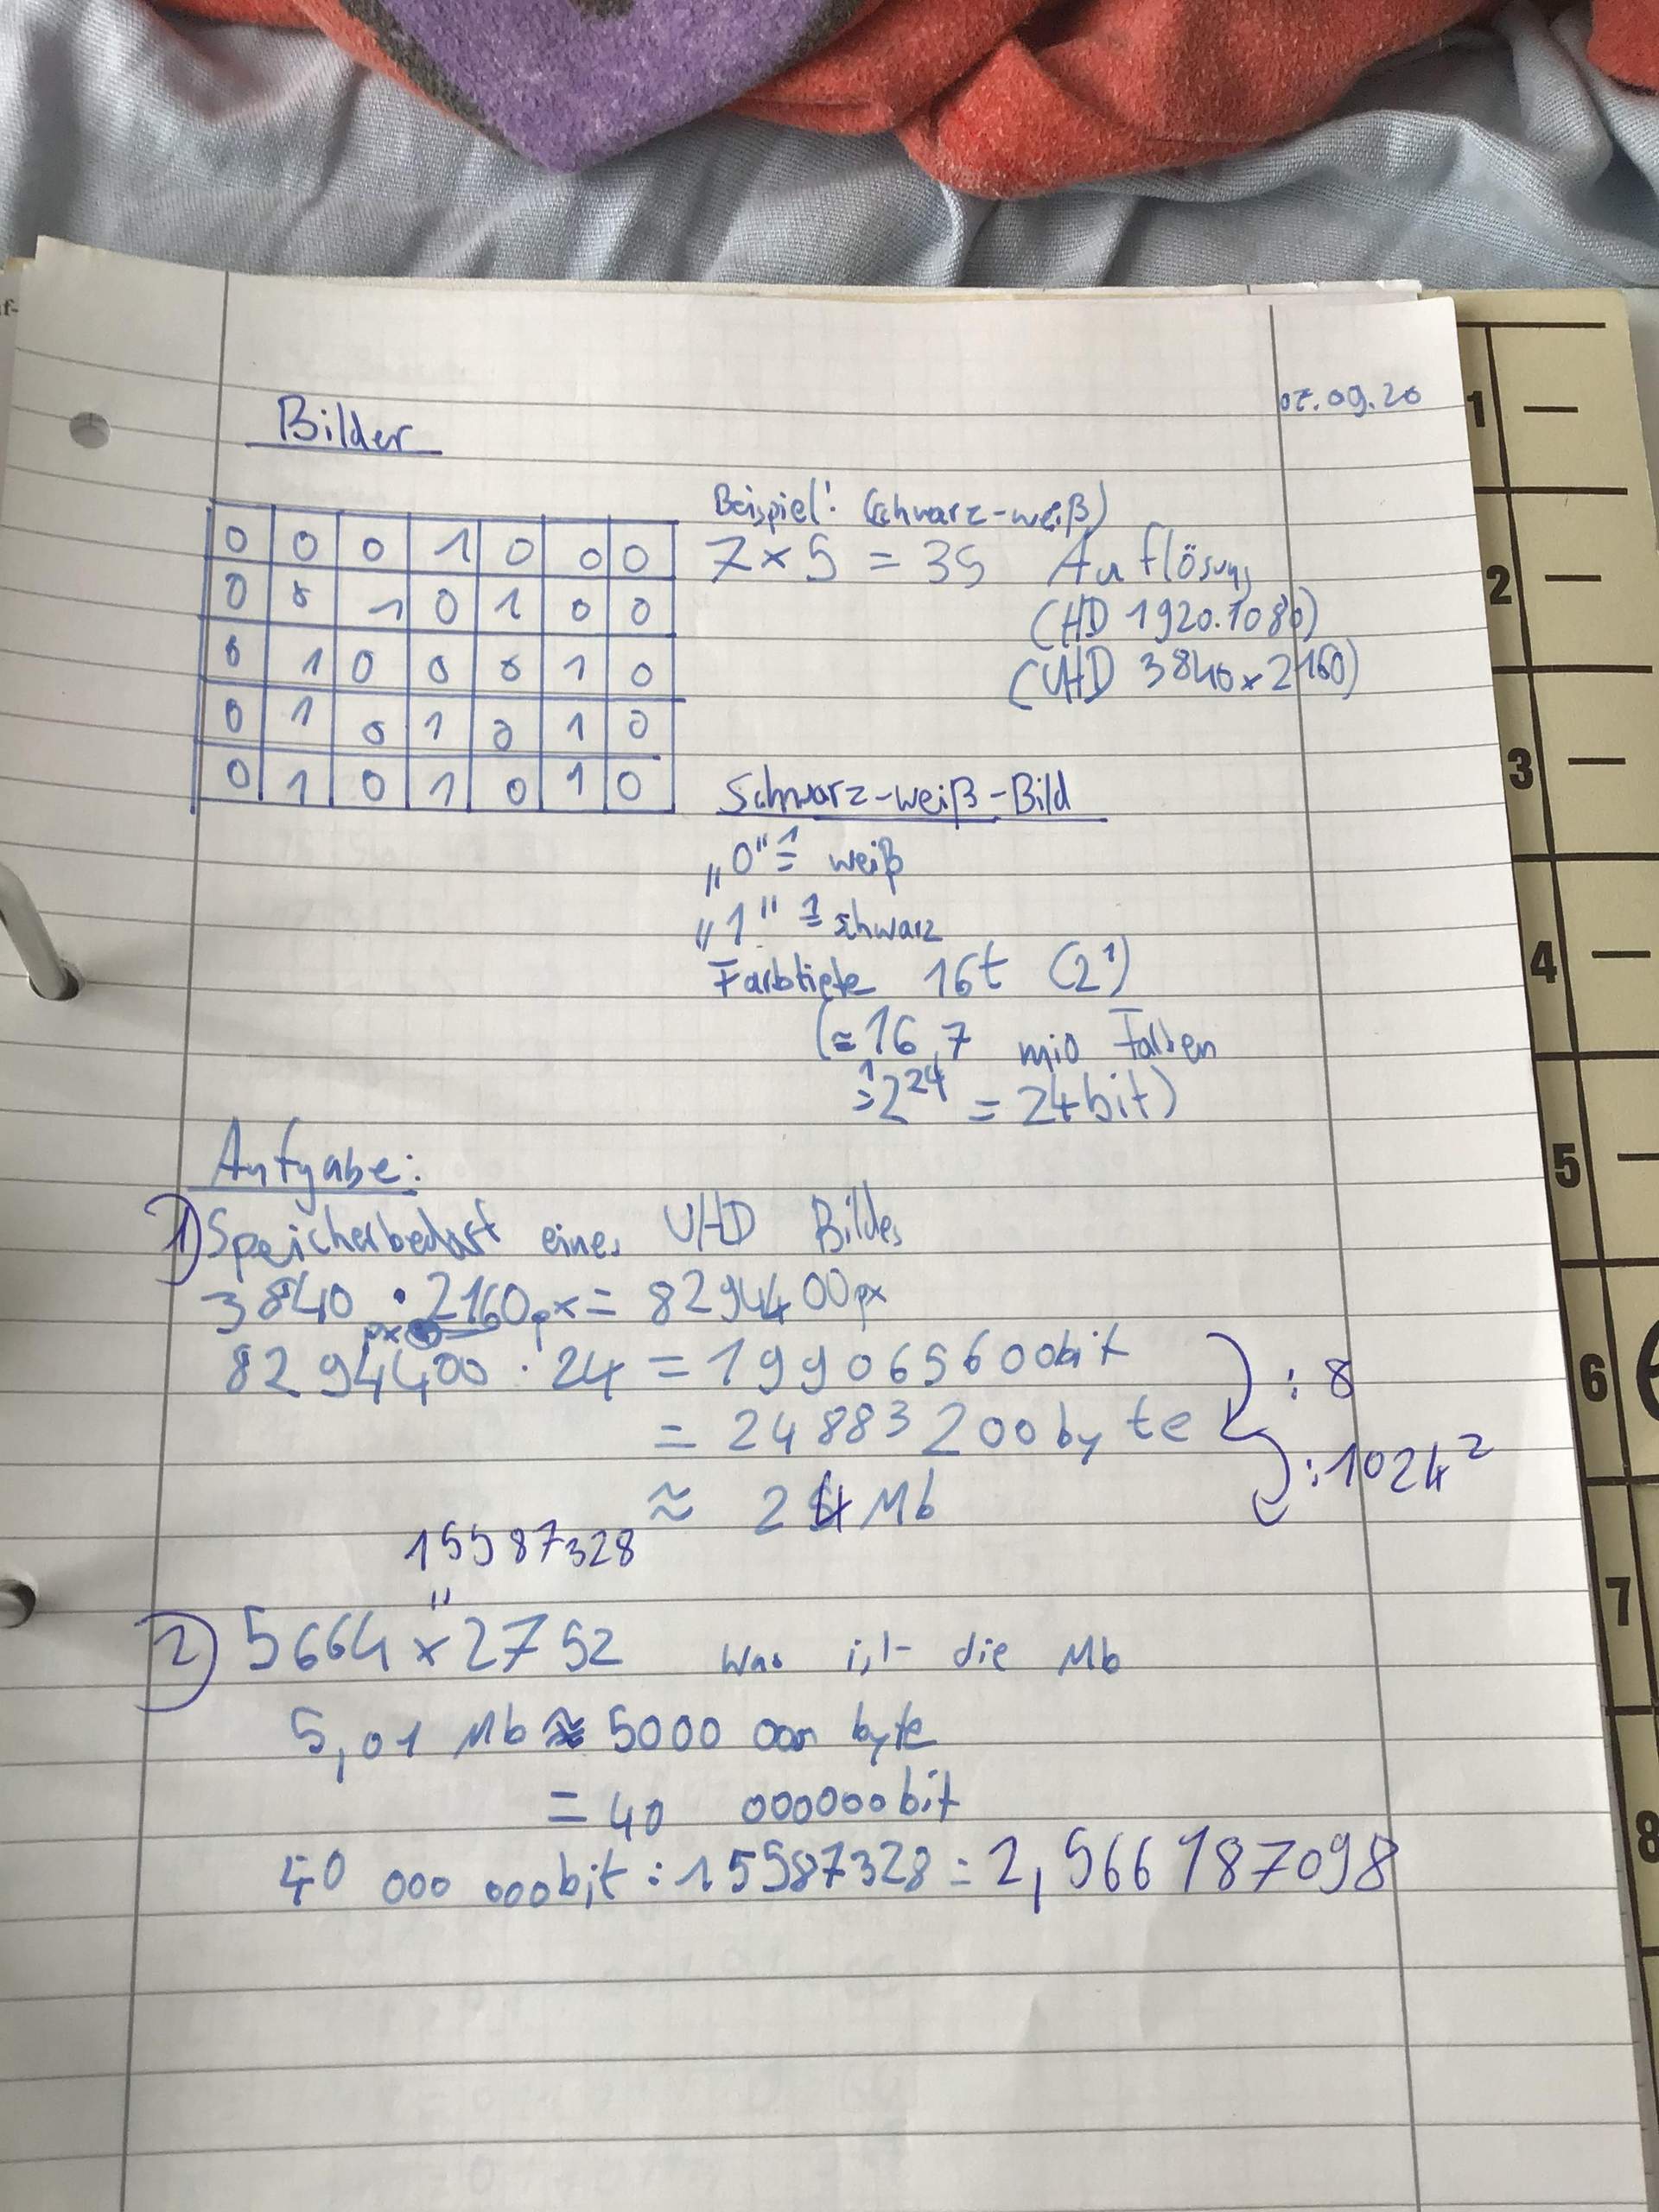 f-
Bilder
07.09.20
0 0 0 1 0 0 0
0 0 1 0 1 0 0
0 1 0 0 0 1 0
0 1 0 1 0 1 0
0 1 0 1 0 1 0
Beispiel: (schwarz-weiß)
7 × 5 = 35 Auflösung
(HD 1920.1080)
(UHD 3840 × 2160)
Schwarz-weiß-Bild
„0" ≙ weiß
„1" ≙ schwarz
Farbtiefe 1bit (2¹)
(≈ 16,7 mio Farben
≙ 2²⁴ = 24bit)
Aufgabe:
1) Speicherbedarf eines UHD Bildes
3840 · 2160px = 8294400px
px
8294400 · 24 = 199065600bit
: 8
= 24883200byte
: 1024²
≈ 24 Mb
15587328
"
2) 5664 × 2752 Was ist die Mb
5,01 Mb ≈ 5000 000 byte
= 40 000000bit
40 000 000bit : 15587328 = 2,566187098
1
2
3
4
5
6
7
8